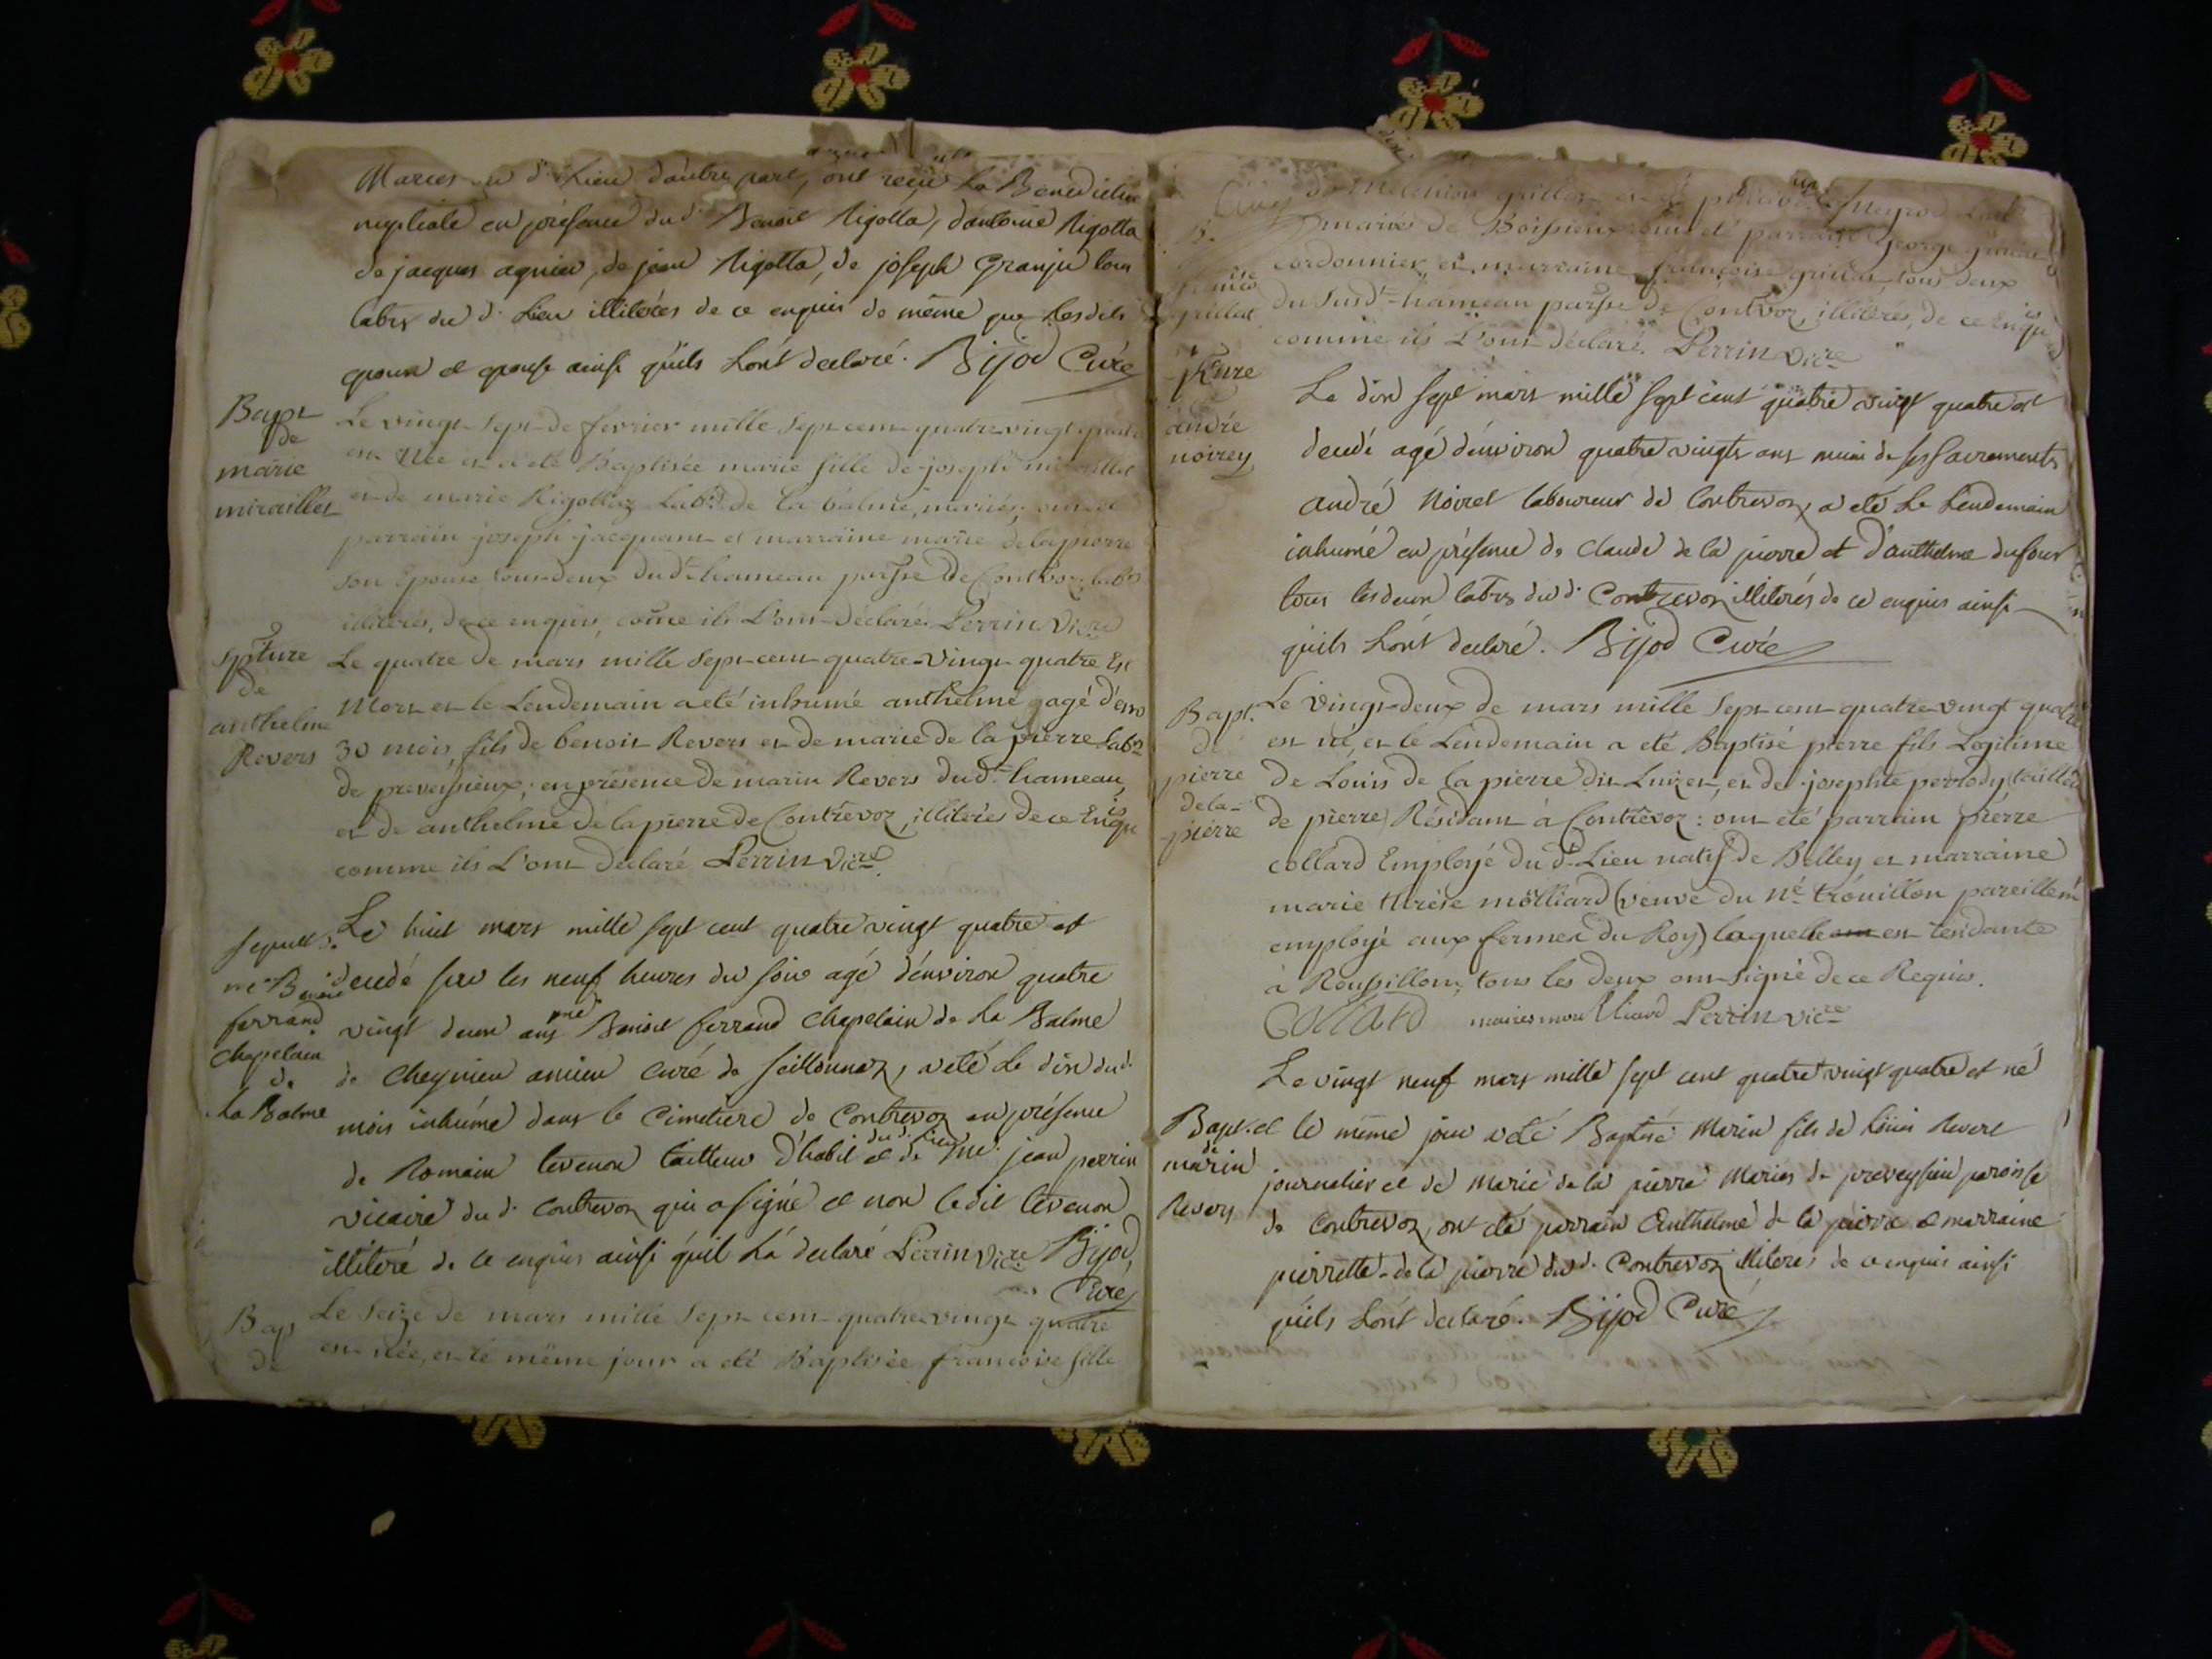 Mariés au d. Lieu d'autre part, ont reçu La Benediction
nuptiale en présence du d. Benoit Rigolla, d'antoine Rigotta
de jacques agnieu, de jean Rigotta, de joseph Granju tous
labrs du d. Lieu illiterés de ce enquis de même que Lesdits
epoux et epouse ainsi qu'ils L'ont declaré. Bijod Curé
Bapt
de
marie
miraillet
Le vingt-sept de fevrier mille sept cent quatre vingt quatre
est Née et a eté Baptisée marie fille de joseph miraillet
et de marie Rigollaz Labrs de la balme, mariés; ont eté
parrain joseph jacquant et marraine marie delapierre
son Epouse tous deux du dt hameau parsse de Contrevoz, labrs
illiterés, de ce enquis, come ils L'ont déclaré Perrin Vicre
Spture
de
anthelme
Revers
Le quatre de mars mille sept cent quatre-Vingt quatre Est
Mort et le Lendemain a eté inhumé anthelme agé d'env
30 mois, fils de benoit Revers et de marie de la pierre Labrs
de preveissieux; en présence de marin Revers du dt hameau,
et de anthelme de la pierre de Contrevoz, illiterés de ce Enquis
comme ils L'ont déclaré Perrin Vicre.
sepult. d.
me Benoit
ferrand
Chapelain
de
La Balme
Le huit mars mille sept cent quatre vingt quatre est
decedé sur les neuf heures du soir agé d'environ quatre
vingt deux ans me Benoit ferrand Chapelain de La Balme
de Cheynieu ancien Curé de Seillonnaz, a eté Le dix dud.
mois inhumé dans le Cimetiere de Contrevoz en présence
de Romain levenon tailleur d'habit du d. Lieu et de Me. jean perrin
vicaire du d. Contrevoz qui a signé et non ledit levenon
illiteré de ce enquis ainsi qu'il L'a declaré Perrin Vicre Bijod
Curé
Bap
de
Le Seize de mars mille sept cent quatre vingt quatre
est née, et le même jour a eté Baptisée francoise fille
mariés de Boissieux ont eté parrain George
cordonnier, et marraine francoise grillat tous deux
du Susdt hameau parsse de Contrevoz, illiterés, de ce Enquis
comme ils L'ont déclaré. Perrin Vicre
grillat
andré
noirey
Le dix sept mars mille sept cent quatre vingt quatre est
decedé agé d'environ quatre vingts ans muni de ses Sacrements
andré Noiret laboureur de Contrevoz, a eté Le Lendemain
inhumé en présence de Claude de la pierre et d'anthelme dufour
tous les deux labrs du d. Contrevoz illiterés de ce enquis ainsi
qu'ils L'ont declaré. Bijod Curé
Bapt.
de
pierre
dela-
pierre
Le Vingt-deux de mars mille sept cent quatre vingt quatre
est né, et le Lendemain a eté Baptisé pierre fils Legitime
de Louis de la pierre dit Luizet, et de josephte perrody (tailleur
de pierre) Résidant à Contrevoz: ont été parrain pierre
collard Employé du dt Lieu natif de Belley et marraine
marie therèse molliard (veuve du né trouillon pareillemt
employé aux fermes du Roy) laquelle est résidante
à Roussillon; tous les deux ont signé de ce Requis.
Collard Perrin vicre
Bapt.
de
marin
Revers
Le vingt neuf mars mille sept cent quatre vingt quatre est né
et le même jour a eté Baptisé Marin fils de Loüis Revert
journalier et de Marie de la pierre Mariés de preveyssieu paroisse
de Contrevoz, ont eté parrain Anthelme de la pierre et marraine
pierrette de la pierre dud. Contrevoz illiterés de ce enquis ainsi
qu'ils L'ont declaré. Bijod Curé